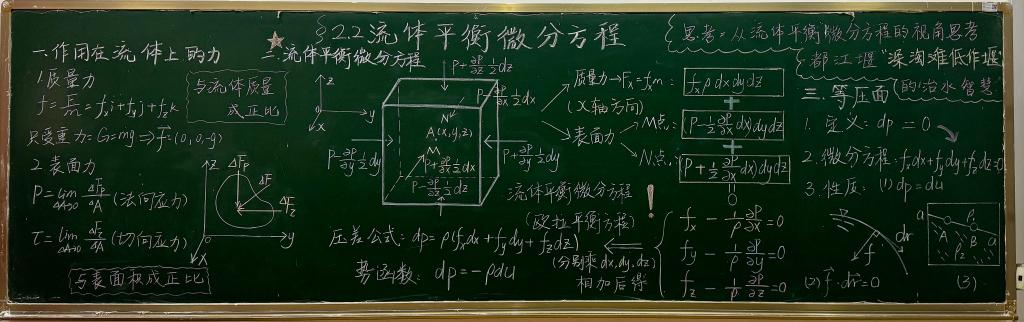 2.2 流体平衡微分方程
一.作用在流体上的力
1.质量力
f = F/m = fₓi + f_yj + f_zk
与流体质量
成正比
只受重力:G=mg⇒f=(0,0,-g)
2.表面力
P = lim ΔA→0 ΔFp/ΔA (法向应力)
τ = lim ΔA→0 ΔFτ/ΔA (切向应力)
与表面积成正比
z
ΔFp
ΔF
ΔFτ
o
y
x
二.流体平衡微分方程
z
y
x
P+∂P/∂z ½dz
∂P/∂x ½dx
N
A(x,y,z)
M
P-∂P/∂y ½dy
P+∂P/∂y ½dy
P+∂P/∂x ½dx
P-∂P/∂z ½dz
质量力→Fₓ=fₓm:
fₓρdxdydz
(X轴方向)
+
表面力
M点:
(P-½∂P/∂x dx)dydz
+
N点:
(P+½∂P/∂x dx)dydz
=
0
流体平衡微分方程!
(欧拉平衡方程)
fₓ-1/ρ ∂P/∂x=0
f_y-1/ρ ∂P/∂y=0
f_z-1/ρ ∂P/∂z=0
(分别乘dx,dy,dz)
相加后得
压差公式:dp=ρ(fₓdx+f_ydy+f_zdz)
势函数:dp=-ρdu
思考:从流体平衡微分方程的视角思考
都江堰“深淘滩低作堰”
的治水智慧
三.等压面
1.定义:dp=0
2.微分方程:fₓdx+f_ydy+f_zdz=0
3.性质:(1)dp=du
dr
f
(2)f·dr=0
a
P₀
A
B
a
(3)